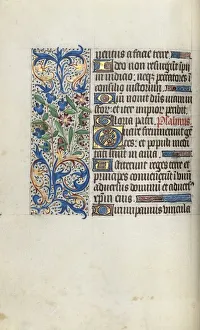 ventus a facie terre
Ideo non resurgunt impii
in iudicio: neqz peccatores in
consilio iustorum
Qm̄ nouit dn̄s viam iu
stor et iter impior peribit
Gloria patri. Psalmus
Quare fremuerunt gē
tes: et populi medi
tati sunt inania
Astiterunt reges terre et
principes conuenerūt in vnū
aduersus dominū et aduers
xp̄m eius
Dirumpamus vincula